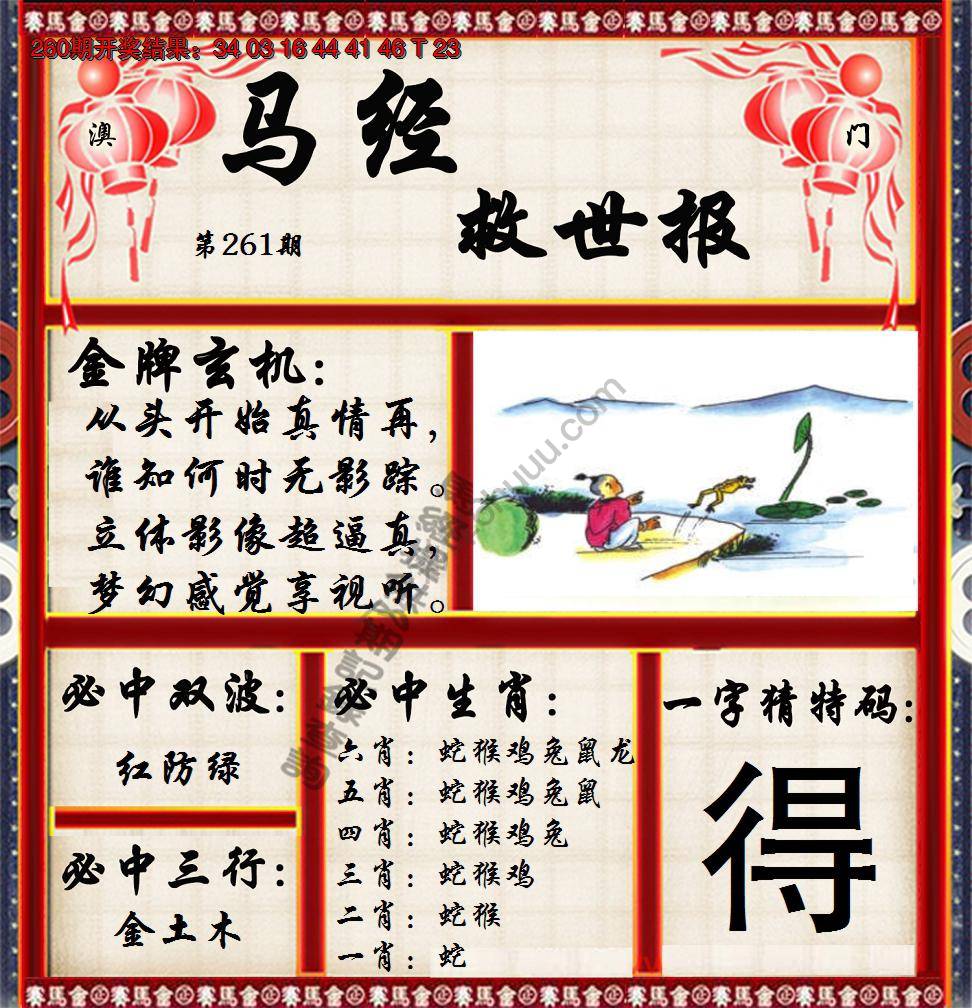 260期开奖结果：34 03 16 44 41 46 T 23
澳
门
马经
救世报
第261期
金牌玄机：
从头开始真情再，
谁知何时无影踪。
立体影像超逼真，
梦幻感觉享视听。
必中双波：
红防绿
必中三行：
金土木
必中生肖：
六肖：蛇猴鸡兔鼠龙
五肖：蛇猴鸡兔鼠
四肖：蛇猴鸡兔
三肖：蛇猴鸡
二肖：蛇猴
一肖：蛇
一字猜特码：
得